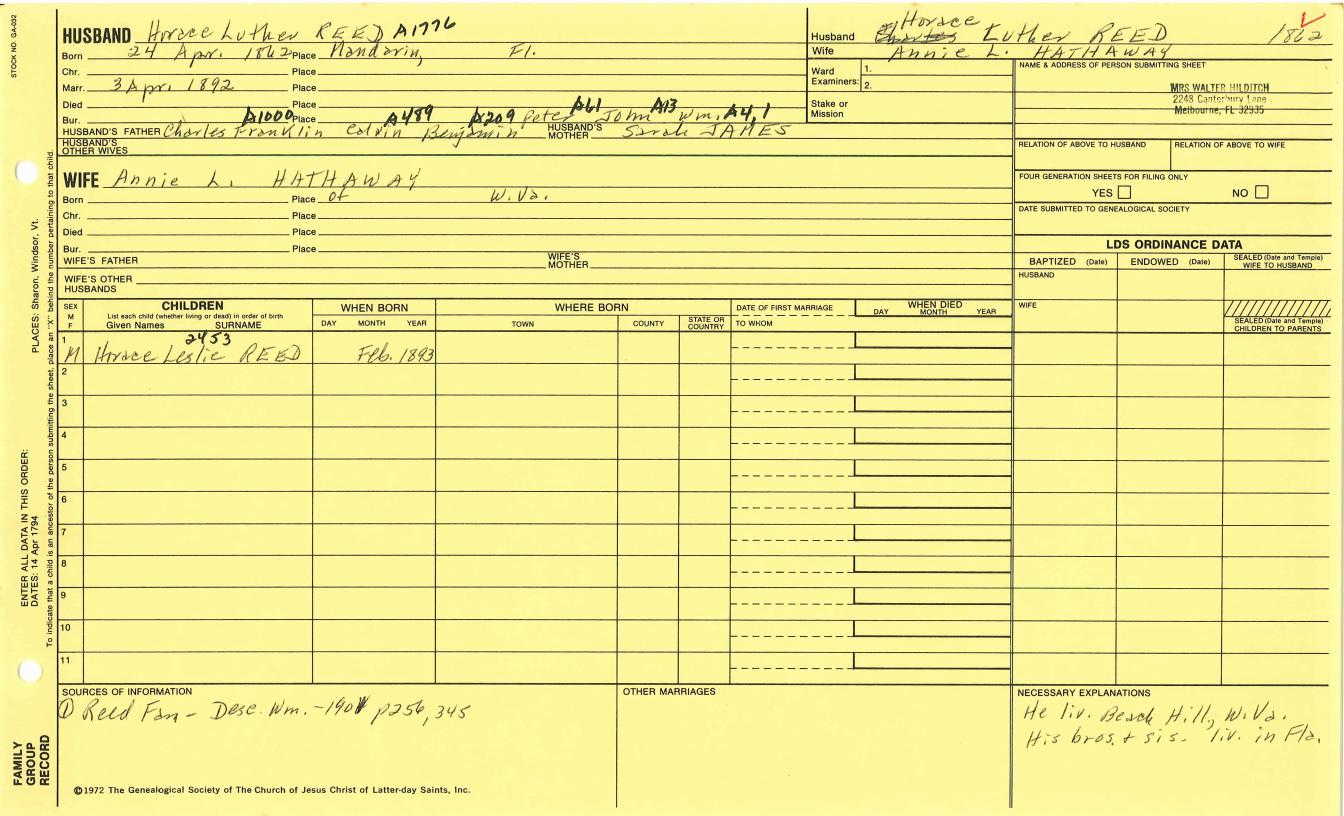 STOCK NO. GA-032
HUSBAND Horace Luther REED A1776
Born 24 Apr. 1862 Place Mandarin, Fl.
Chr. Place
Marr. 3 Apr. 1892 Place
Died Place
Bur. Place
A1000 A489 A209 A61 A13 A4, 1
HUSBAND'S FATHER Charles Franklin Calvin Benjamin Peter John Wm. HUSBAND'S MOTHER Sarah JAMES
HUSBAND'S OTHER WIVES
WIFE Annie L. HATHAWAY
Born Place of W. Va.
Chr. Place
Died Place
Bur. Place
WIFE'S FATHER WIFE'S MOTHER
WIFE'S OTHER HUSBANDS
Husband Horace Charles Luther REED 1862
Wife Annie L. HATHAWAY
Ward Examiners: 1. 2.
Stake or Mission
NAME & ADDRESS OF PERSON SUBMITTING SHEET
MRS WALTER HILDITCH
2248 Canterbury Lane
Melbourne, FL 32935
RELATION OF ABOVE TO HUSBAND RELATION OF ABOVE TO WIFE
FOUR GENERATION SHEETS FOR FILING ONLY
YES NO
DATE SUBMITTED TO GENEALOGICAL SOCIETY
LDS ORDINANCE DATA
BAPTIZED (Date) ENDOWED (Date) SEALED (Date and Temple) WIFE TO HUSBAND
HUSBAND
WIFE
SEALED (Date and Temple) CHILDREN TO PARENTS
SEX M F
CHILDREN
List each child (whether living or dead) in order of birth
Given Names SURNAME
WHEN BORN
DAY MONTH YEAR
WHERE BORN
TOWN COUNTY STATE OR COUNTRY
DATE OF FIRST MARRIAGE
TO WHOM
WHEN DIED
DAY MONTH YEAR
2453
1 M Horace Leslie REED Feb. 1893
2
3
4
5
6
7
8
9
10
11
SOURCES OF INFORMATION
① Reed Fam - Desc. Wm. - 1901 p256, 345
OTHER MARRIAGES
NECESSARY EXPLANATIONS
He liv. Beach Hill, W. Va.
His bros. + sis. liv. in Fla.
©1972 The Genealogical Society of The Church of Jesus Christ of Latter-day Saints, Inc.
FAMILY GROUP RECORD
ENTER ALL DATA IN THIS ORDER:
DATES: 14 Apr 1794
PLACES: Sharon, Windsor, Vt.
To indicate that a child is an ancestor of the person submitting the sheet, place an "X" behind the number pertaining to that child.